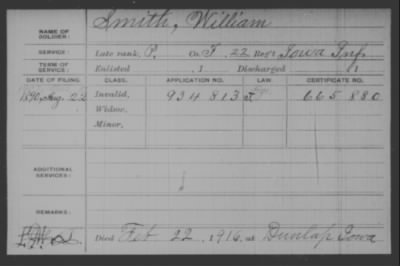 NAME OF SOLDIER: Smith, William
SERVICE: Late rank, P, Co. F, 22 Reg't Iowa Inf.
TERM OF SERVICE: Enlisted , 1 Discharged , 1
DATE OF FILING. CLASS. APPLICATION NO. LAW. CERTIFICATE NO.
1890 Aug. 22 Invalid, 934813 665880
Widow,
Minor,
ADDITIONAL SERVICES:
REMARKS:
Died Feb 22, 1916, at Dunlap Iowa